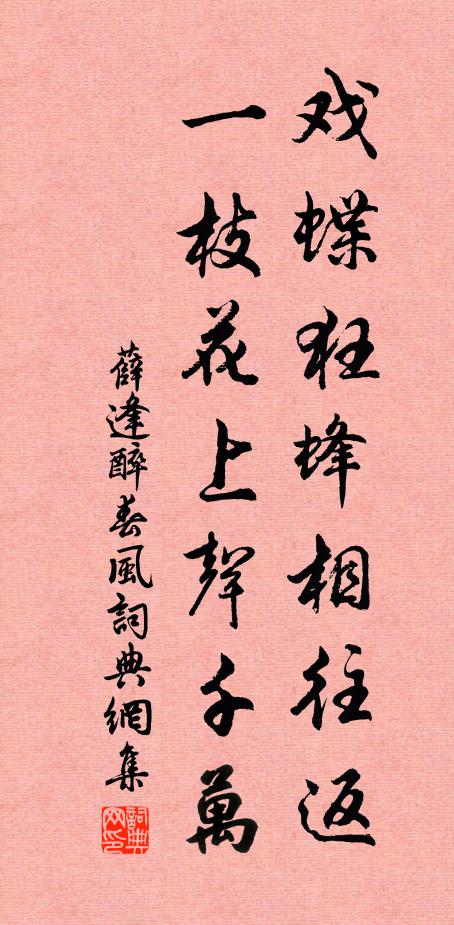 戏蝶狂蜂相往返
一枝花上聲千萬
薛逢醉春風詞典網集
詞典网印